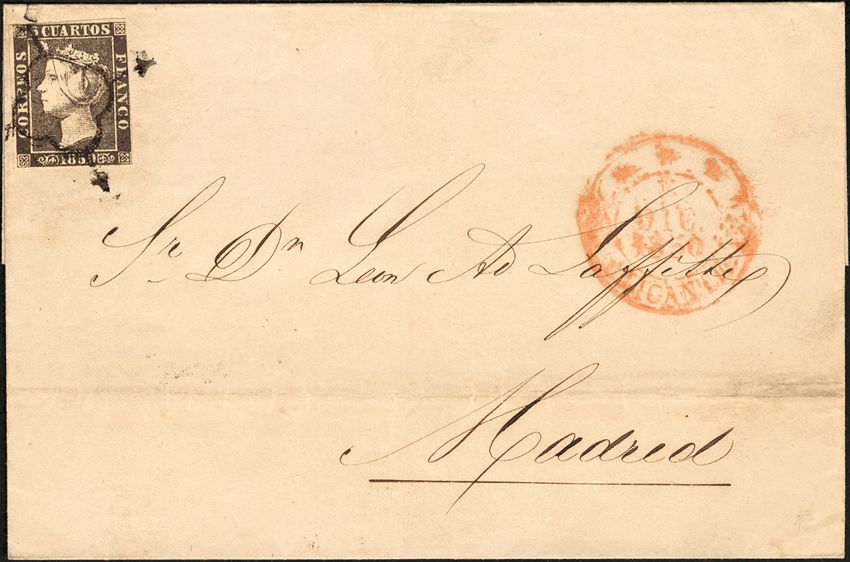 6 CUARTOS
CORREOS
FRANCO
1850
DIC
1850
ALICANTE
Sr Dn Leon Ad Laffitte
Madrid